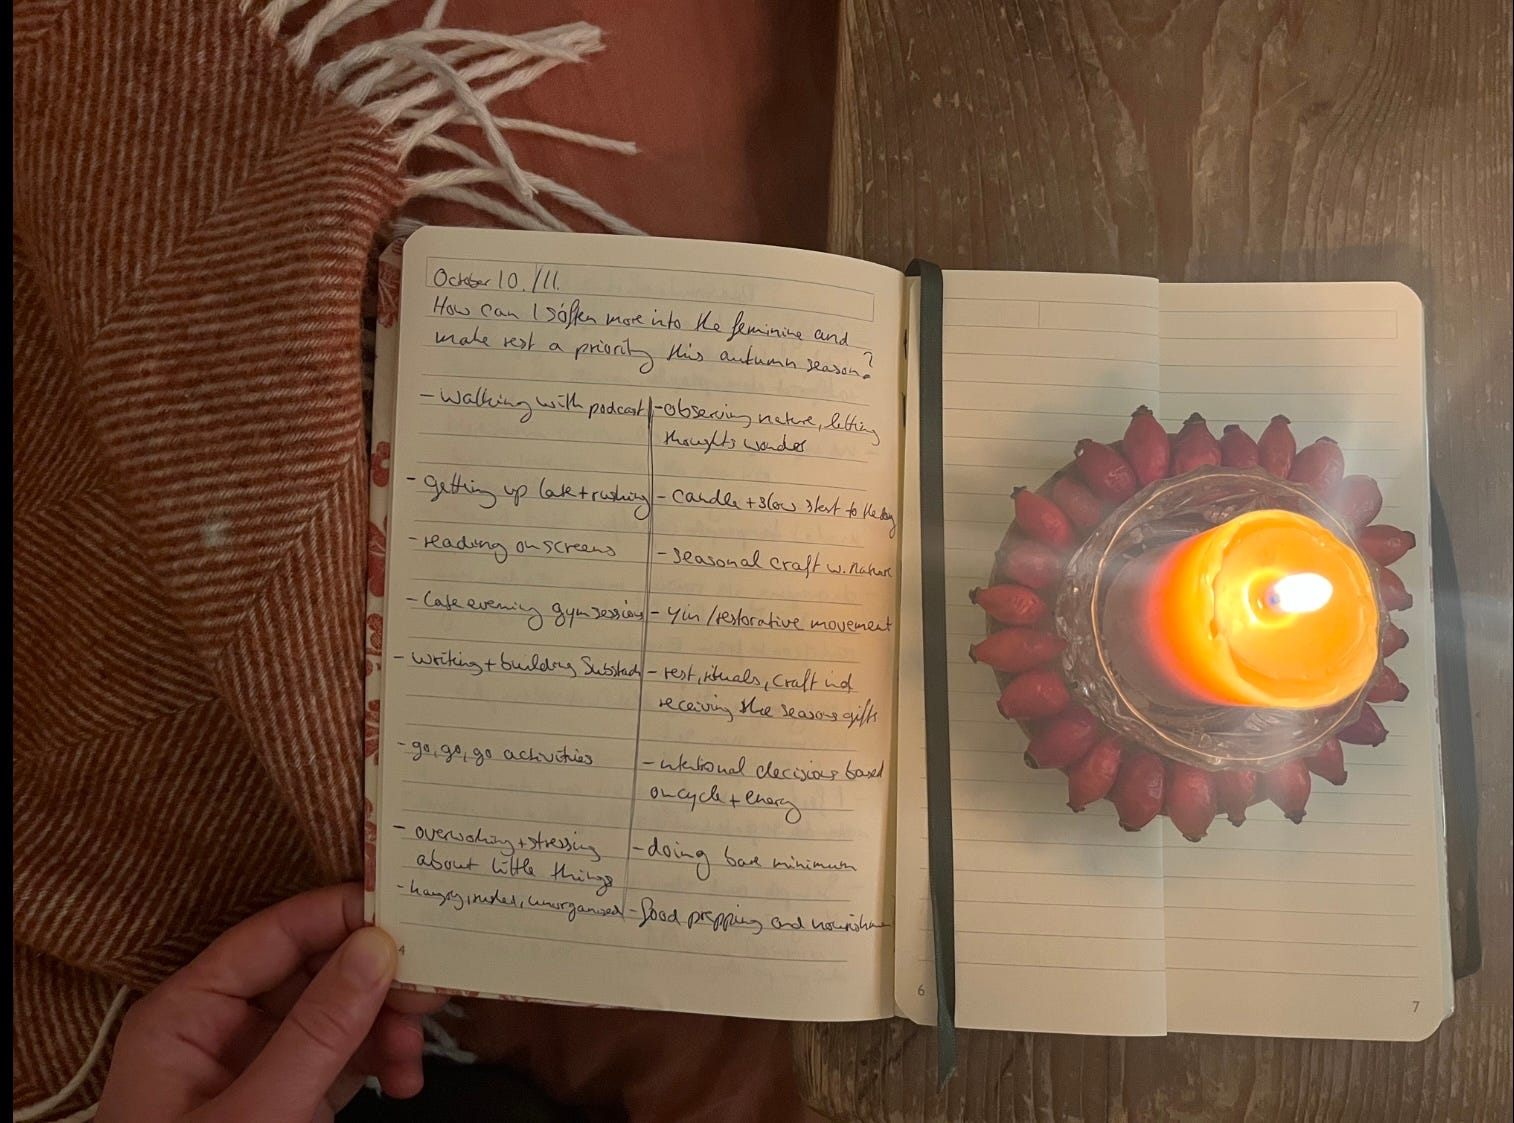 October 10./11.
How can I soften more into the feminine and
make rest a priority this autumn season?
- walking with podcast
- observing nature, letting
thoughts wander
- getting up late + rushing
- candle + slow start to the day
- reading on screens
- seasonal craft w. nature
- late evening gym sessions
- yin/restorative movement
- writing + building Substack
- rest, rituals, craft and
receiving the seasons gifts
- go, go, go activities
- intentional decisions based
on cycle + energy
- overworking + stressing
about little things
- doing bare minimum
- hangry, unorganised
- food prepping and
4
6
7